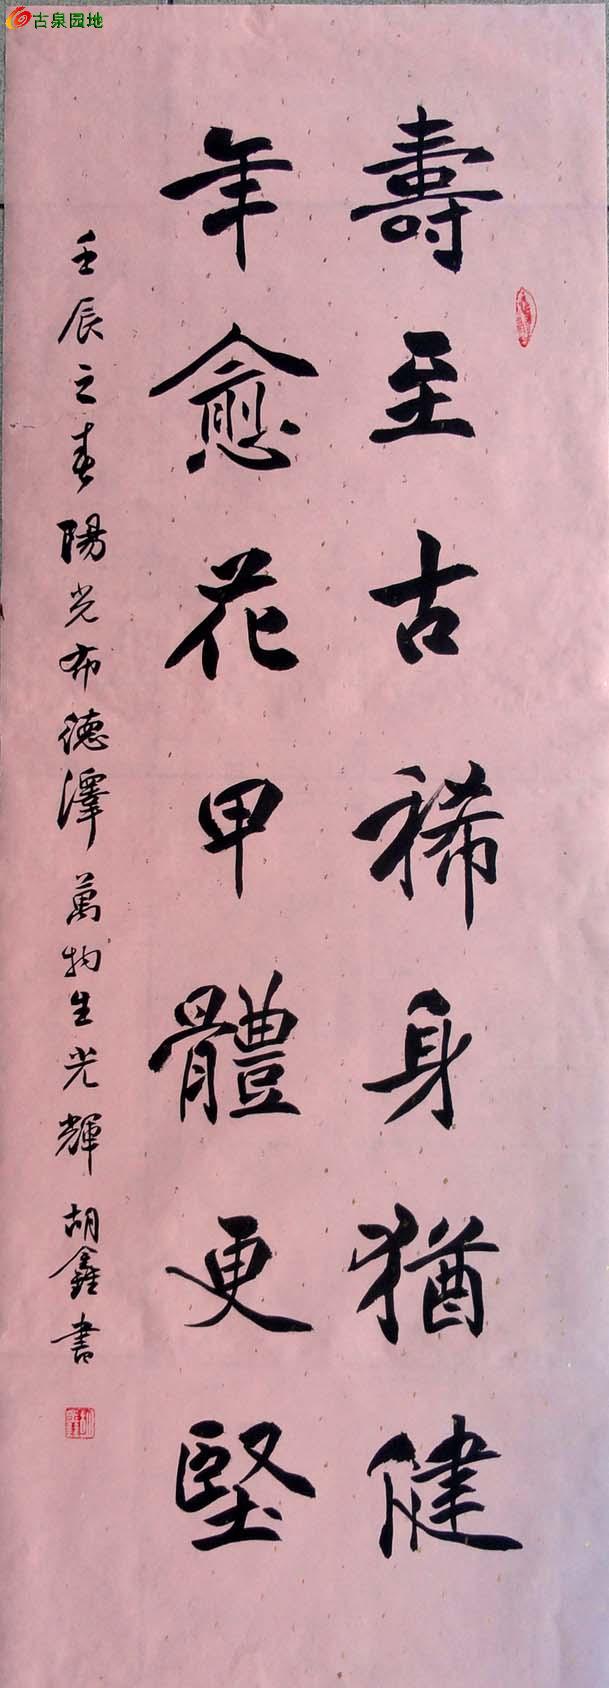 古泉园地
壽至古稀身猶健
年愈花甲體更堅
壬辰之春陽光布德澤萬物生光輝胡鑫書